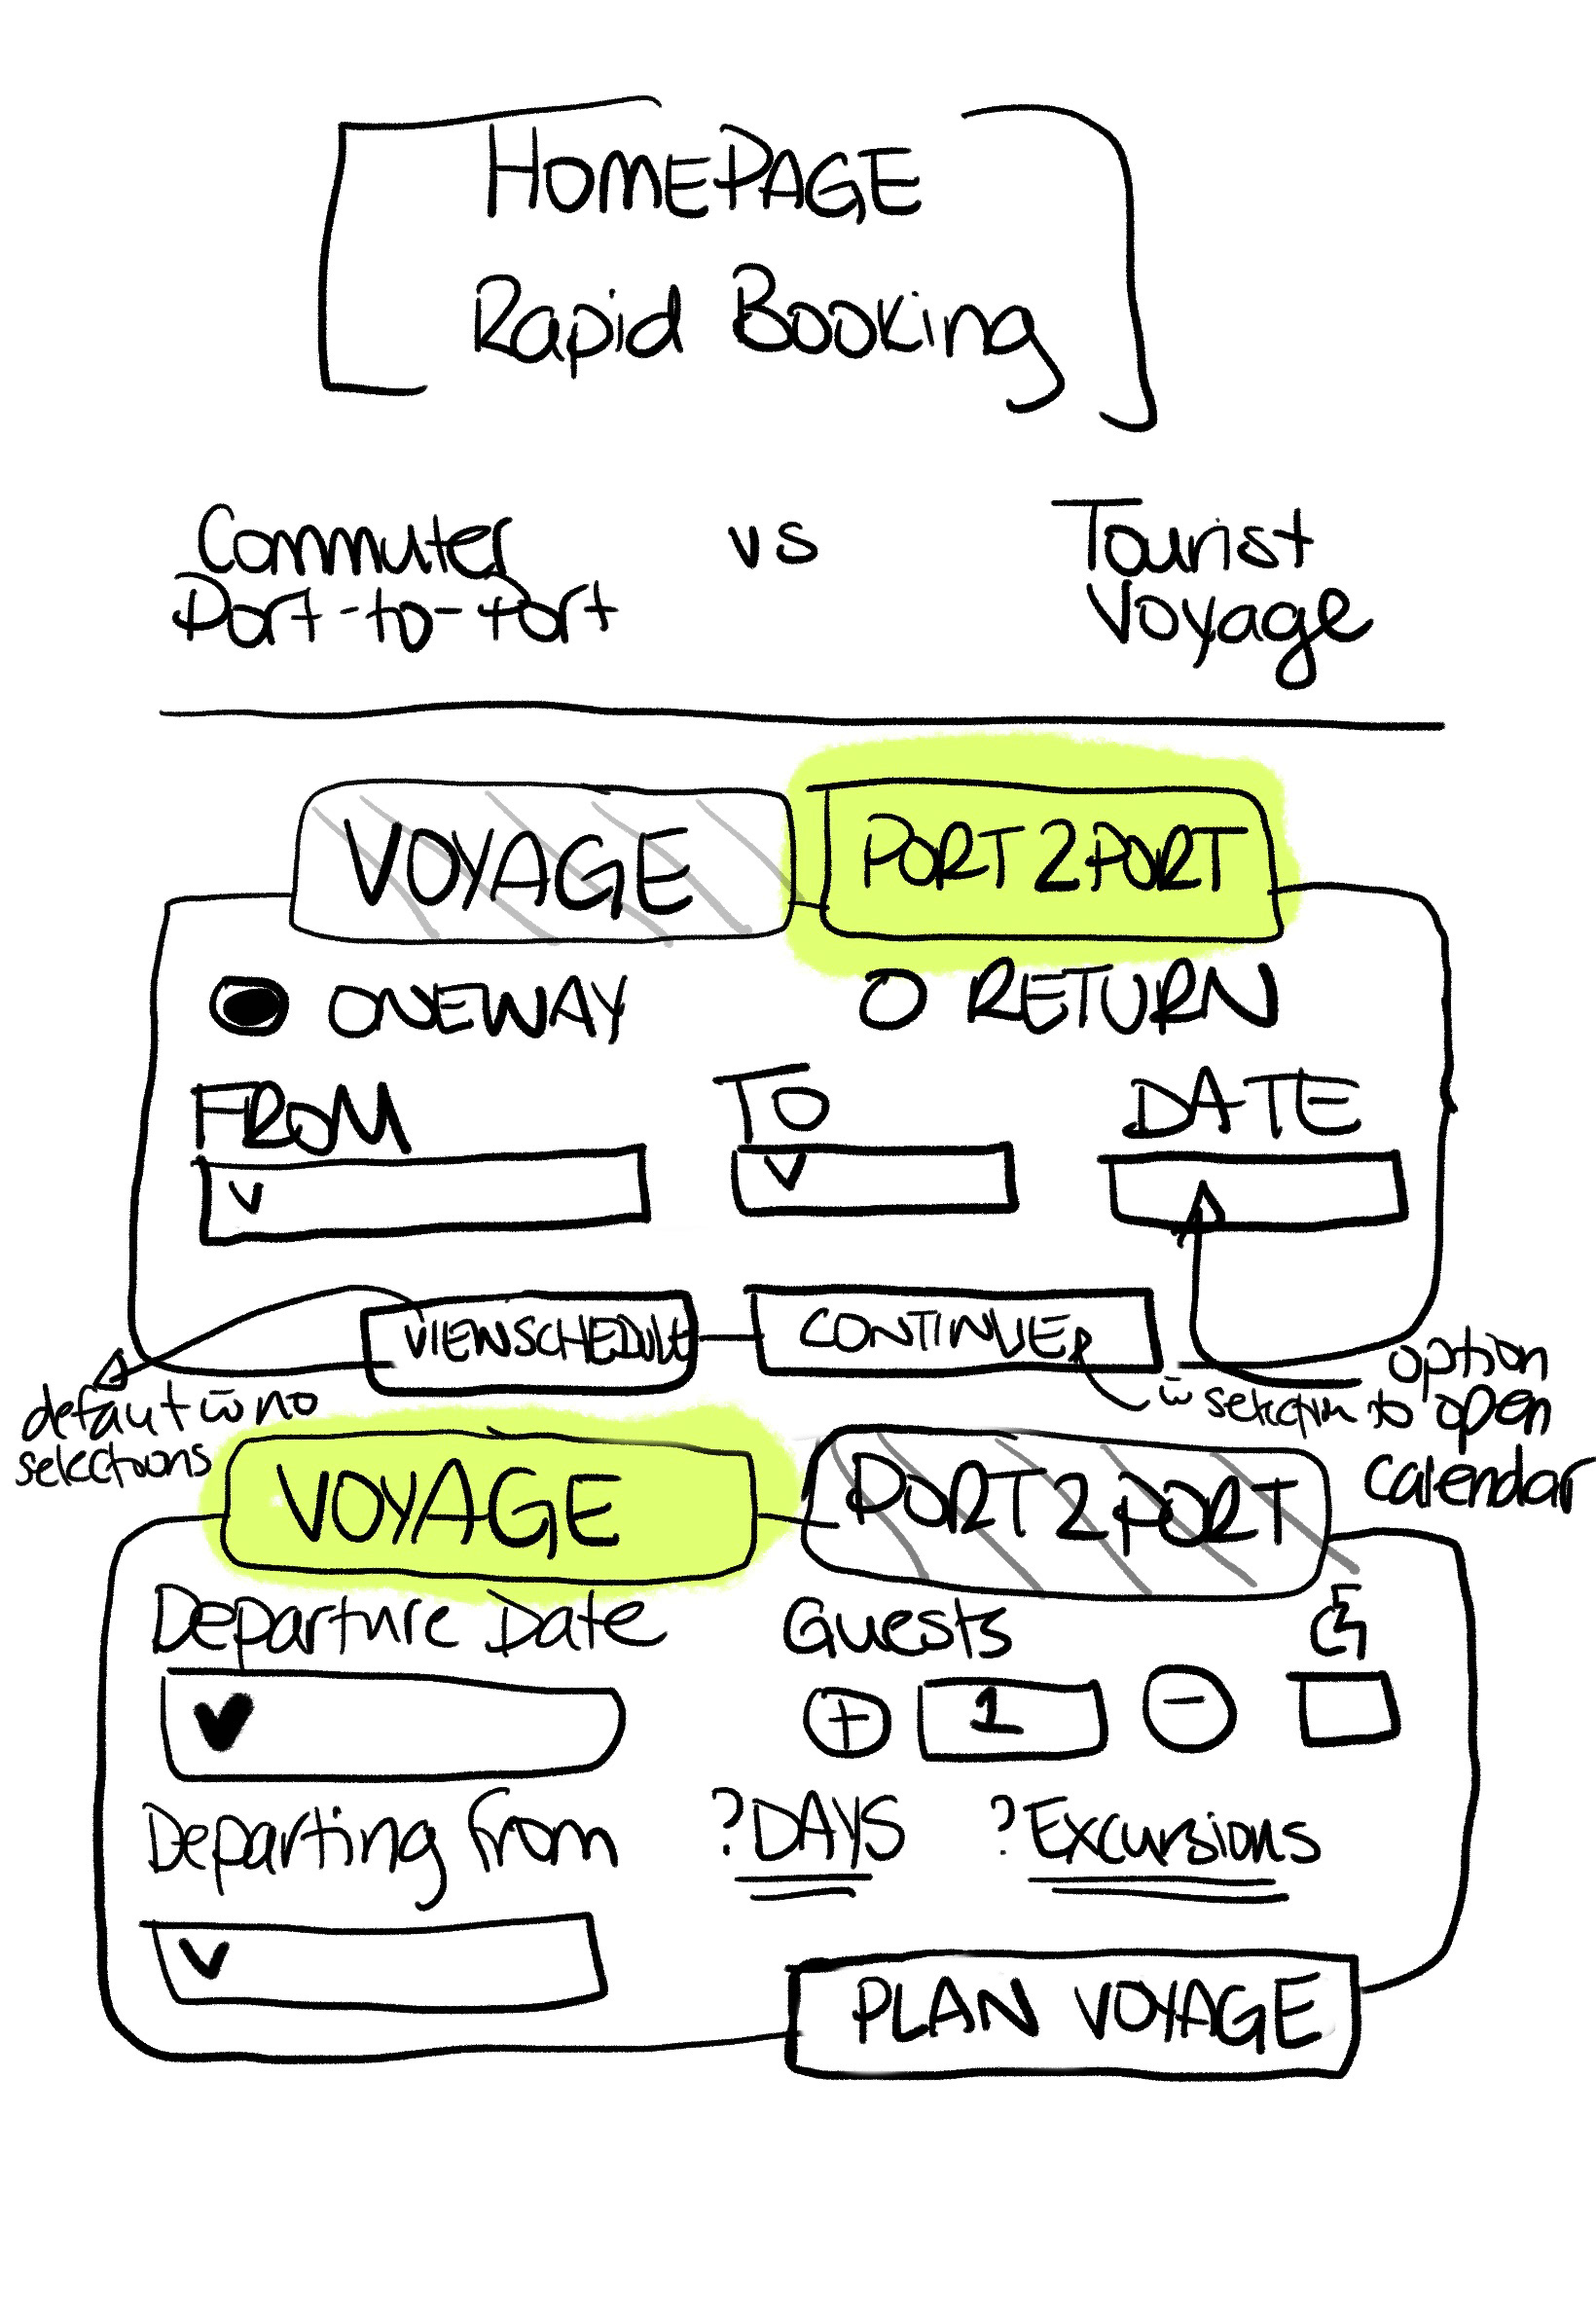 HOMEPAGE
Rapid Booking
Commuter vs Tourist
Port-to-Port Voyage
VOYAGE PORT2PORT
ONEWAY RETURN
FROM TO DATE
VIEW SCHEDULE CONTINUE
defaut w̄ no
selections
w̄ selection
option
to open
calendar
VOYAGE PORT2PORT
Departure Date Guests
+ 1 -
Departing from ?DAYS ?Excursions
PLAN VOYAGE